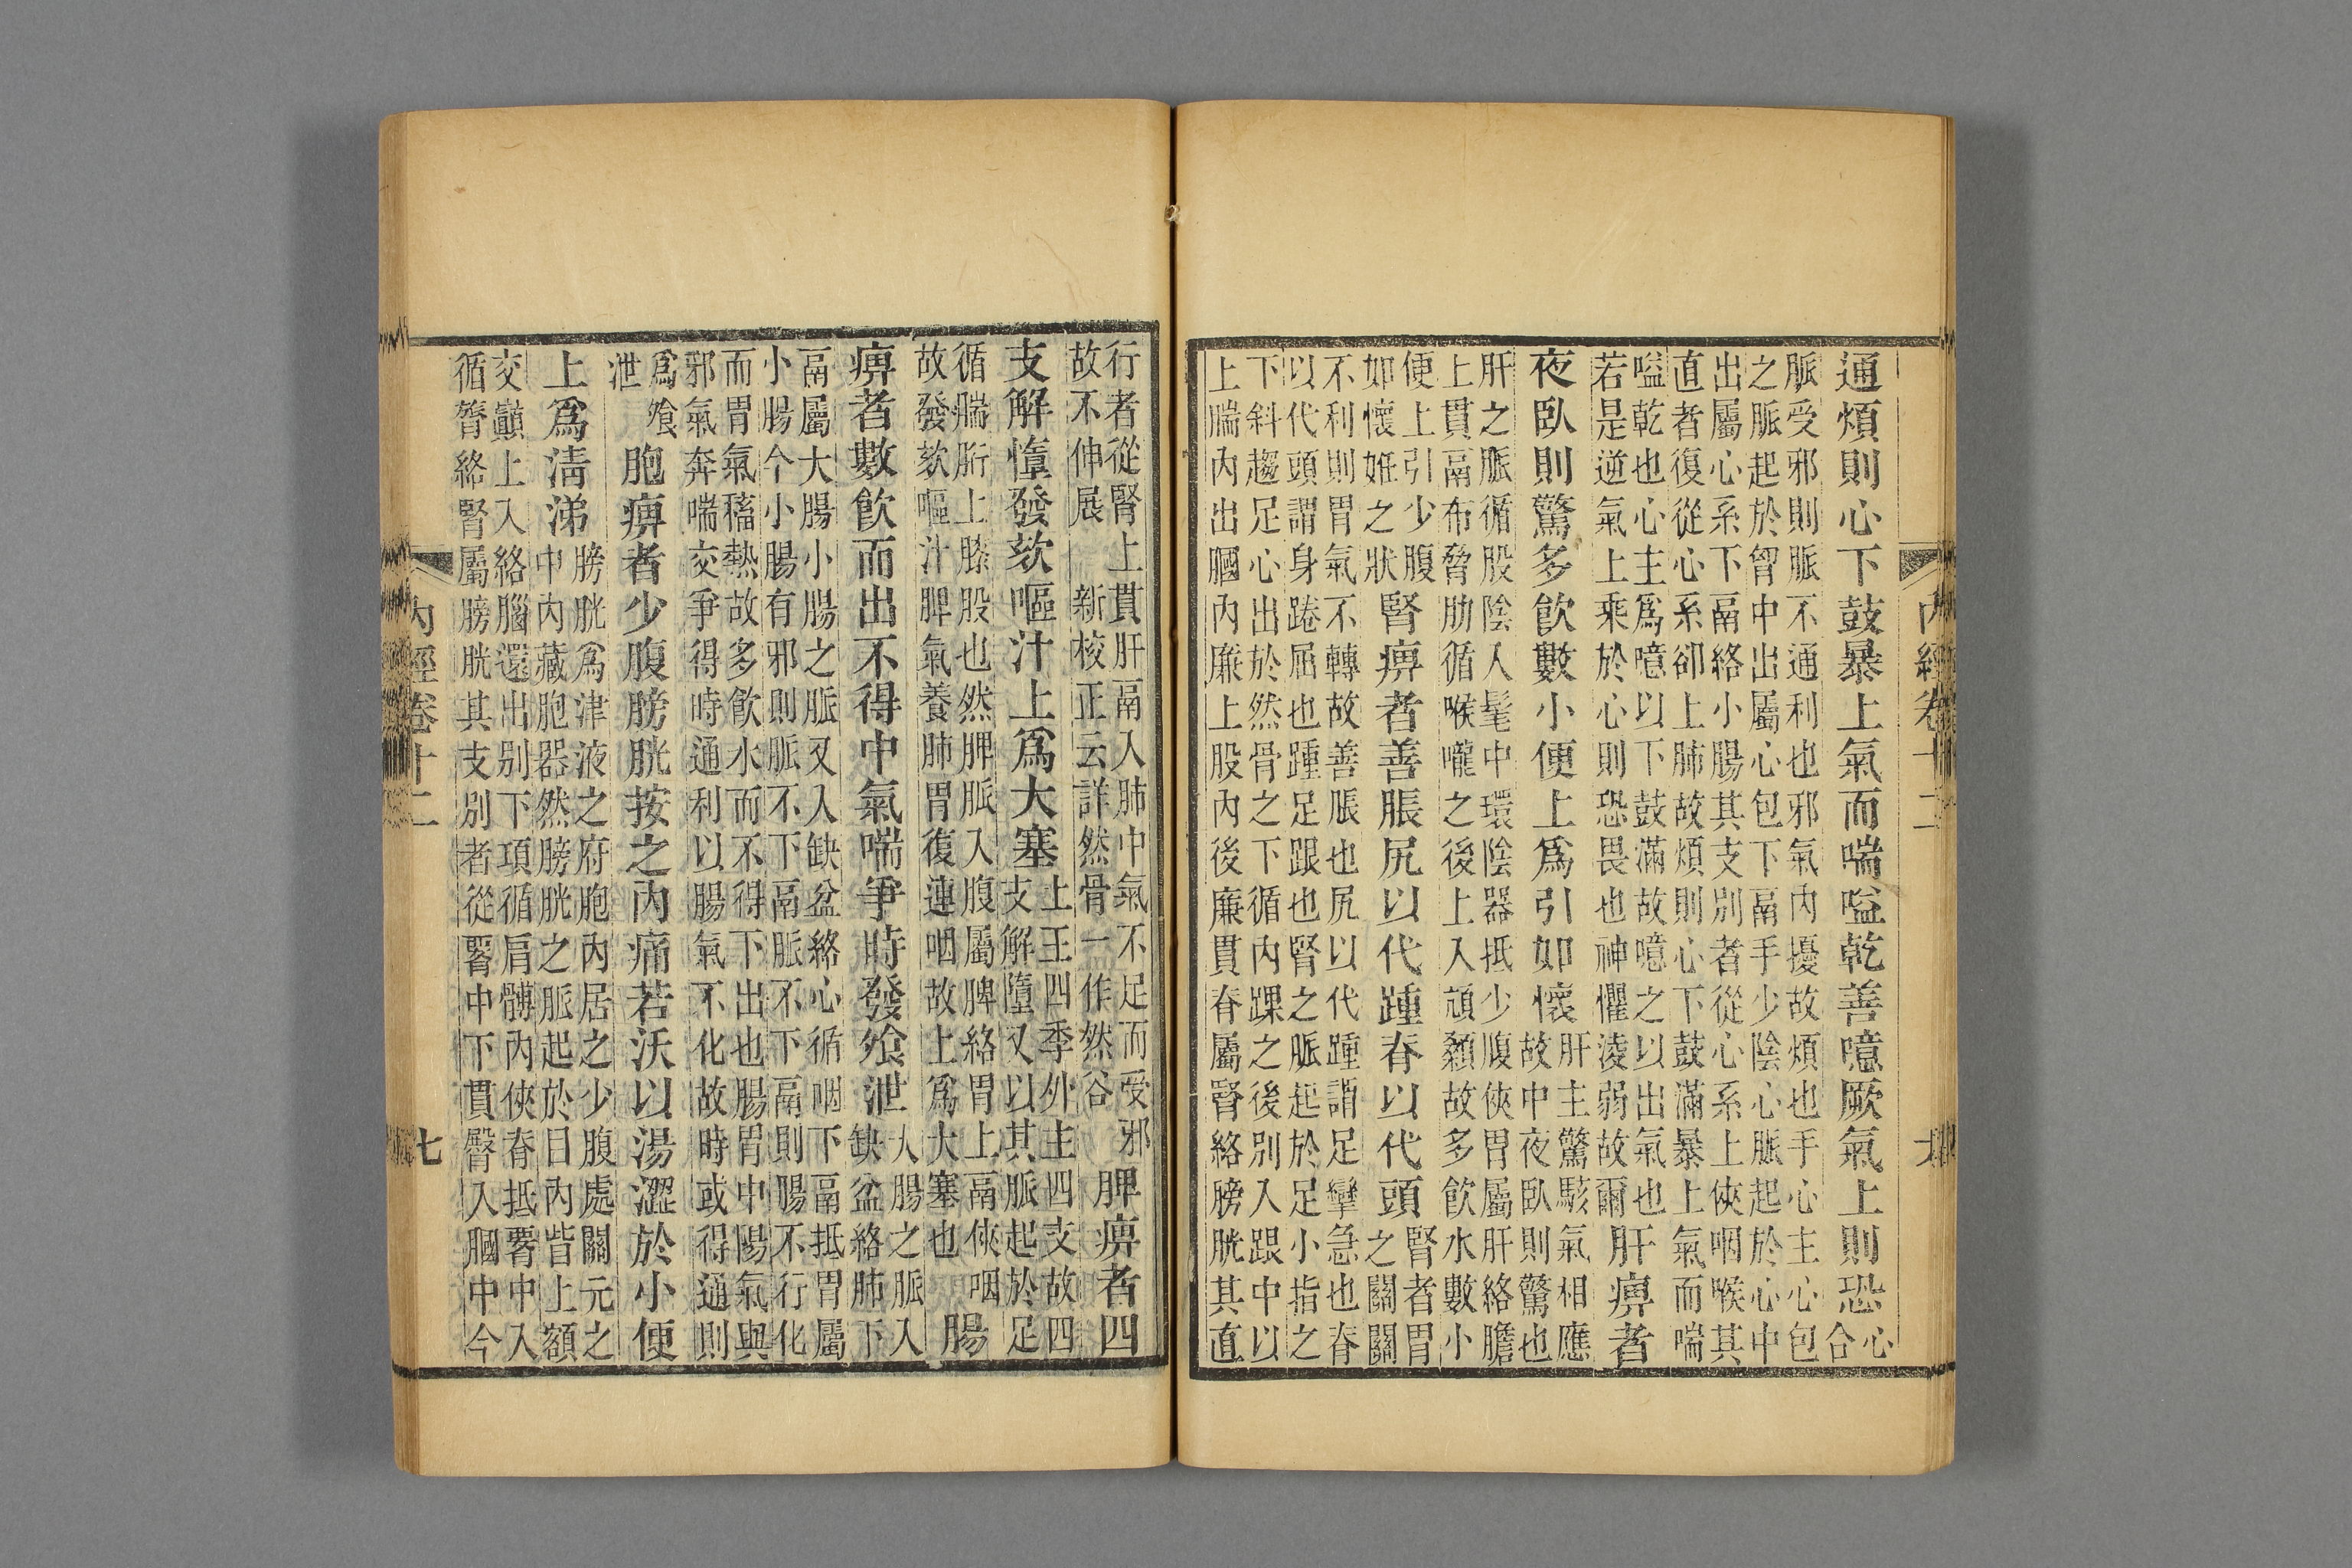 內經卷十二
六
通煩則心下鼓暴上氣而喘嗌乾善噫厥氣上則恐
心
合
脈受邪則脈不通利也邪氣內擾故煩也手心主心包
之脈起於胷中出屬心包下鬲手少陰心脈起於心中
出屬心系下鬲絡小腸其支別者從心系上俠咽喉其
直者復從心系卻上肺故煩則心下鼓滿暴上氣而喘
嗌乾也心主爲噫以下鼓滿故噫之以出氣也
若是逆氣上乘於心則恐畏也神懼淩弱故爾
肝痹者
夜臥則驚多飲數小便上爲引如懷
肝主驚駭氣相應
故中夜臥則驚也
肝之脈循股陰入髦中環陰器抵少腹俠胃屬肝絡膽
上貫鬲布脅肋循喉嚨之後上入頏顙故多飲水數小
便上引少腹
如懷姙之狀
腎痹者善脹尻以代踵脊以代頭
腎者胃
之關關
不利則胃氣不轉故善脹也尻以代踵謂足攣急也脊
以代頭謂身踡屈也踵足跟也腎之脈起於足小指之
下斜趨足心出於然骨之下循內踝之後別入跟中以
上腨內出膕內廉上股內後廉貫脊屬腎絡膀胱其直
行者從腎上貫肝鬲入肺中氣不足而受邪
故不伸展 新校正云詳然骨一作然谷
脾痹者四
支解墮發欬嘔汁上爲大塞
土王四季外主四支故四
支解墮又以其脈起於足
循腨胻上膝股也然脾脈入腹屬脾絡胃上鬲俠咽
故發欬嘔汁脾氣養肺胃復連咽故上爲大塞也
腸
痹者數飲而出不得中氣喘爭時發飧泄
大腸之脈入
缺盆絡肺下
鬲屬大腸小腸之脈又入缺盆絡心循咽下鬲抵胃屬
小腸今小腸有邪則脈不下鬲脈不下鬲則腸不行化
而胃氣稸熱故多飲水而不得下出也腸胃中陽氣與
邪氣奔喘交爭得時通利以腸氣不化故時或得通則
爲飧
泄
胞痹者少腹膀胱按之內痛若沃以湯澀於小便
上爲淸涕
膀胱爲津液之府胞內居之少腹處關元之
中內藏胞器然膀胱之脈起於目內眥上額
交巔上入絡腦還出別下項循肩髆內俠脊抵腰中入
循膂絡腎屬膀胱其支別者從腰中下貫臀入膕中今
內經卷十二
七